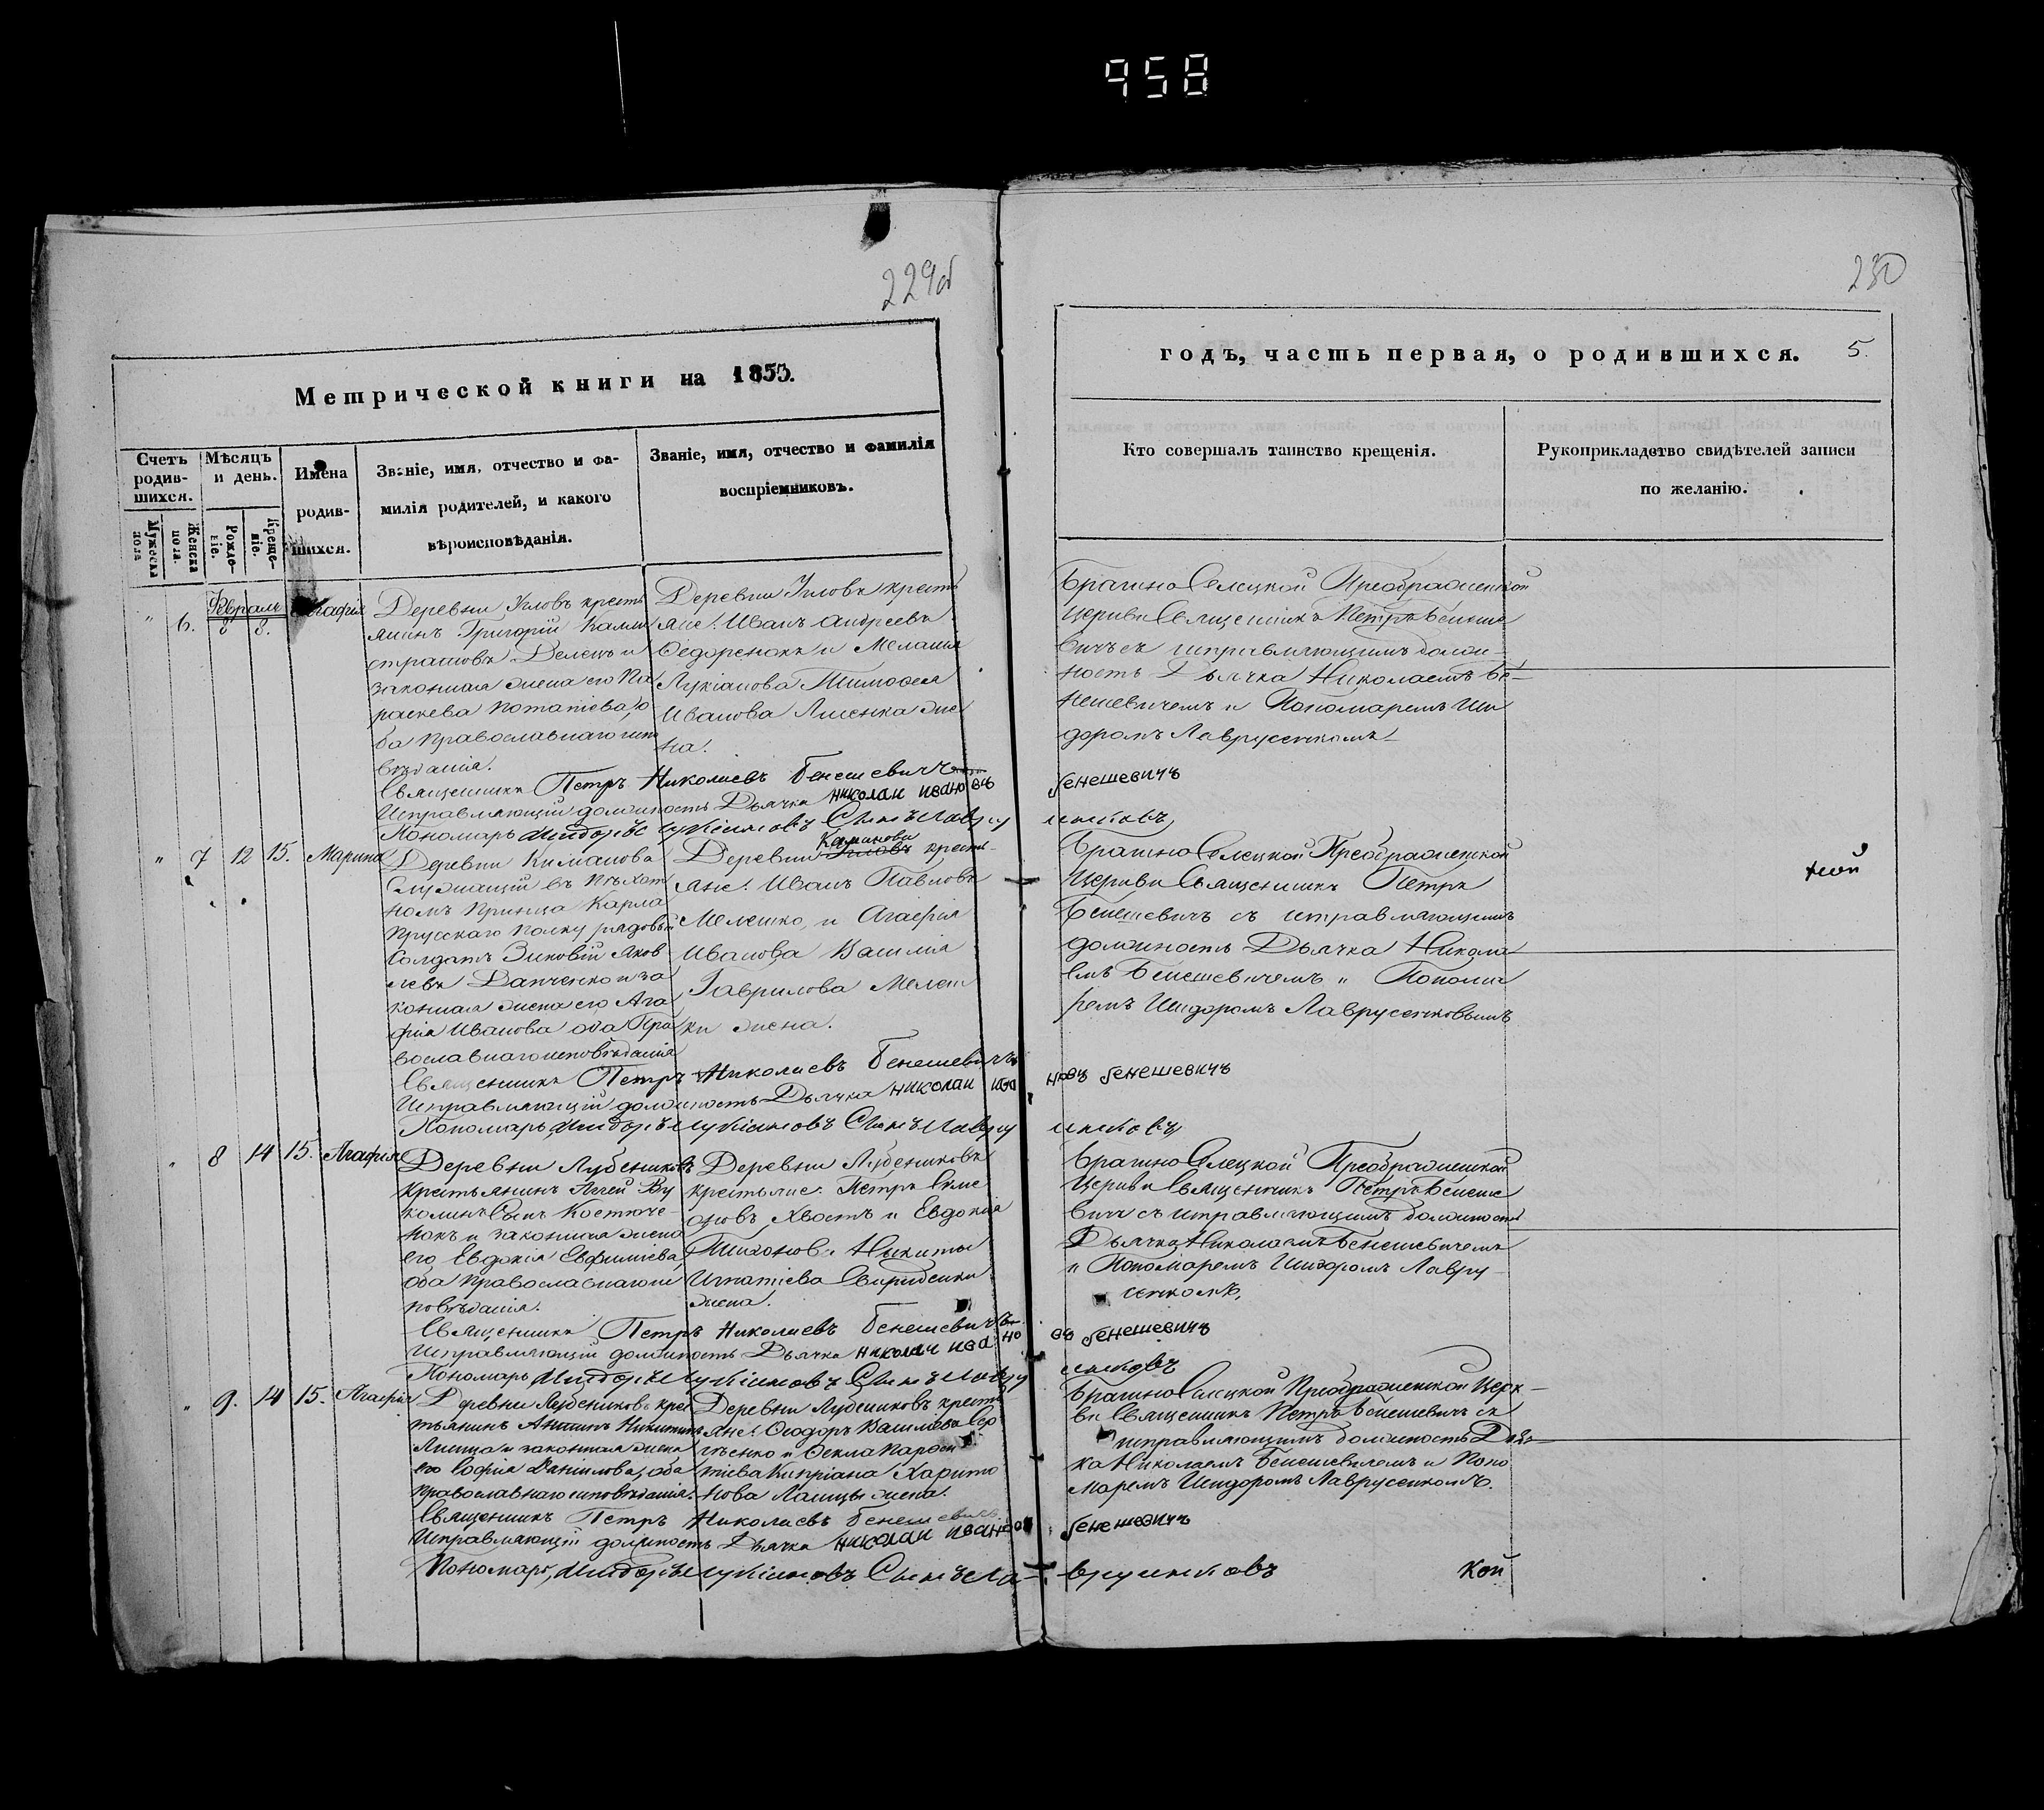 958
229об
230
Метрической книги на 1853.
годъ, часть первая, о родившихся. 5.
Счетъ родив-шихся.
Мужеска пола
Женска пола.
Мѣсяцъ и день.
Рожде-ніе.
Креще-ніе.
Имена
родив-
шихся.
Званіе, имя, отчество и фа-
милія родителей, и какого
вѣроисповѣданія.
Званіе, имя, отчество и фамилія
воспріемниковъ.
Кто совершалъ таинство крещенія.
Рукоприкладство свидѣтелей записи
по желанію.
Февраль
" 6. 8 8. Агафія
Деревни Угловъ кресть
янинъ Григорій Калли
стратовъ Делецъ и
законная жена его Па
раскева Потапіева, о
ба православнаго испо
вѣданія.
Деревни Угловъ кресть
яне: Иванъ Андреевъ
Ѳедоренокъ и Меланія
Лукіанова Тимоѳея
Иванова жe
на.
Брагино Селецкой Преображенской
Церкви Священникъ Петръ Бенеше
вичъ съ исправляющимъ долж-
ность Дьячка Николаемъ Бе-
нешевичемъ и Пономаремъ Иси
доромъ Лаврусенкомъ
Священникъ Петръ Николаевъ Бенешевичъ
Исправляющій должность Дьячка николаи ивановъ бенешевичъ
Пономарь Исидоръ Лукіановъ Сынъ Лавру сенковъ
" 7 12 15. Марина
Деревни Киманова
Служащій въ Пѣхот
номъ Принца Карла
Прусскаго полку рядовый
Солдатъ Зиновій Яков
левъ Данченко и за
конная жена его Ага
фія Иванова оба Пра
вославнаго исповѣданія
Деревни Угловъ кресть-
яне: Иванъ Павловъ
Мелешко, и Агафія
Иванова Василія
Гаврилова Мелеш
ки жена.
Брагино Селецкой Преображенской
Церкви Священникъ Петръ
Бенешевичъ съ исправляющимъ
должность Дьячка Никола
емъ Бенешевичемъ и Понома
ремъ Исидоромъ Лаврусенковымъ
ной
Священникъ Петръ Николаевъ Бенешевичъ
Исправляющій должность Дьячка николаи ива новъ бенешевичъ
Пономарь Исидоръ Лукіановъ Сынъ Лавру сенковъ
" 8 14 15. Агафія
Деревни Лубениковъ
крестьянинъ Аггей Ву
колинъ Сынъ Костюче-
нокъ и законная жена
его Евдокія Евфиміева,
оба православнаго ис
повѣданія.
Деревни Лубениковъ
крестьяне: Петръ Симе
оновъ Хвостъ и Евдокія
Тихонова Никиты
Игнатіева Свириденки
жена.
Брагино Селецкой Преображенской
Церкви Священникъ Петръ Бенеше
вичъ съ исправляющимъ должность
Дьячка Николаемъ Бенешевичемъ
и Пономаремъ Исидоромъ Лавру-
сенкомъ.
Священникъ Петръ Николаевъ Бенешевичъ
Исправляющій должность Дьячка николаи ивано въ бенешевичъ
Пономарь Исидоръ Лукіановъ Сынъ Лавру сенковъ
" 9. 14 15. Агафія
Деревни Лубениковъ крес
тьянинъ Антипъ Никитинъ
Липница и законная жена
его Софія Даніилова, оба
православнаго исповѣданія.
Деревни Лубениковъ кресть
яне: Ѳеодоръ Васильевъ Сер
гѣенко и Ѳекла
Кипріана Харито
нова жена.
Брагино Селецкой Преображенской Церк-
ви Священникъ Петръ Бенешевичъ съ
исправляющимъ должность Дьяч-
ка Николаемъ Бенешевичемъ и Поно
маремъ Исидоромъ Лаврусенкомъ.
Священникъ Петръ Николаевъ Бенешевичъ.
Исправляющій должность Дьячка николаи ивановъ бенешевичъ
Пономарь, Исидоръ Лукіановъ Сынъ Ла- врусенковъ кой